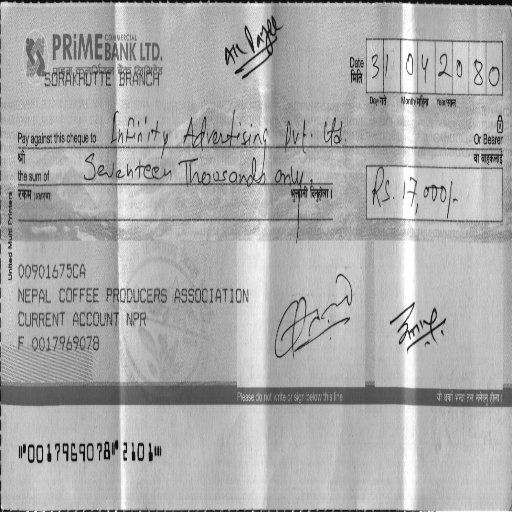 A/C Payee
PRIME COMMERCIAL BANK LTD.
SORAKHUTTE BRANCH
Date 31 04 2080
मिति
Day/गते Month/महिना Year/साल
Pay against this cheque to Infinity Advertising Pvt. Ltd. Or Bearer
श्री वा वाहकलाई
the sum of Seventeen Thousands only. Rs. 17,000/-
रकम (अक्षरमा)
United Multi Printers
00901675CA
NEPAL COFFEE PRODUCERS ASSOCIATION
CURRENT ACCOUNT NPR
F 0017969078
Please do not write or sign below this line
⑈0017969078⑈ 2101⑈